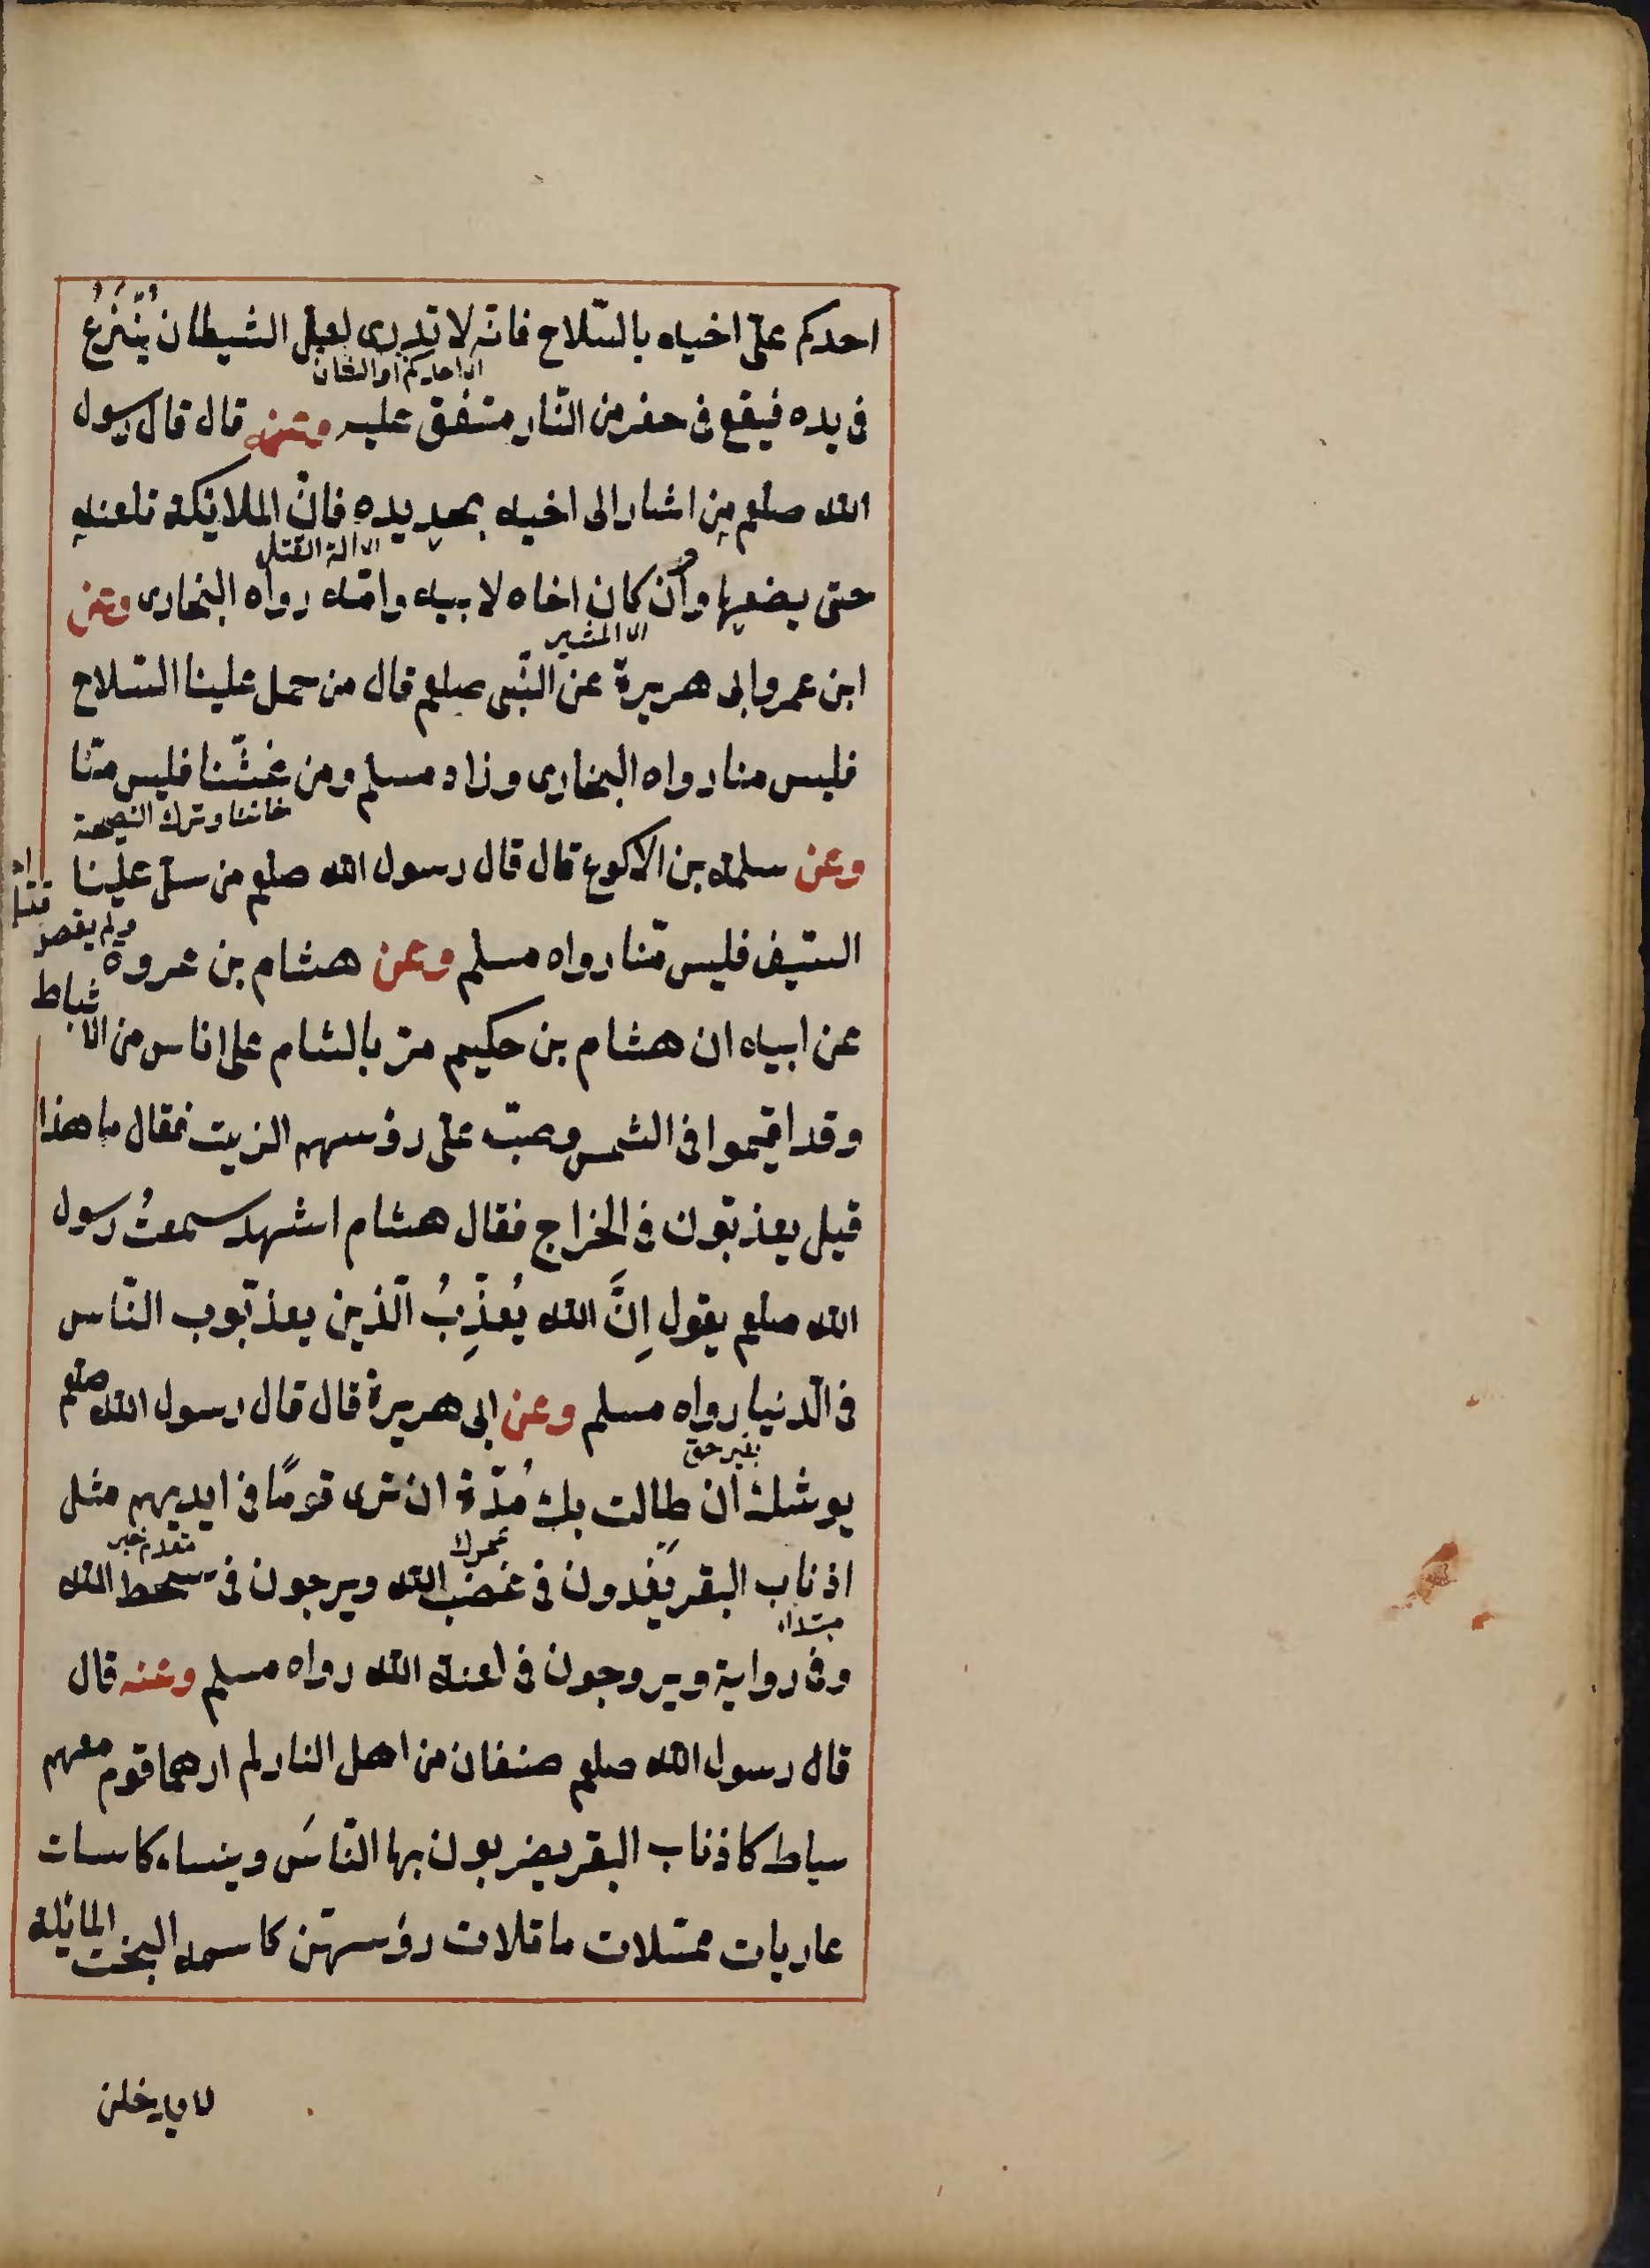 احدكم على اخيه بالسّلاح فانه لا تدرى لعل الشيطان يَنْزِعُ
اى احدكم او الشان
فى يده فيقع فى حفر من النّار متفق عليه وعنه قال قال رسول
الله صلعم من اشار الى اخيه بحديده فانّ الملائكة تلعنه
اى الة القتل
حتى يضعها وأن كان اخاه لابيه وامّه رواه البخارى وعن
اى المشير
ابن عمر وابى هريرة عن النّبى صلعم قال من حمل علينا السّلاح
فليس منا رواه البخارى وزاد مسلم ومن غشّنا فليس منّا
خاننا وترك النصيحة
وعن سلمه بن الاكوع قال قال رسول الله صلعم من سلّ علينا
السّيف فليس منّا رواه مسلم وعن هشام بن عروة
عن ابيه ان هشام بن حكيم مرّ بالشام على اناس من الانباط
وقد اقيموا فى الشمس وصبّ على رؤسهم الزيت فقال ما هذا
قيل يعذبّون فى الخراج فقال هشام اشهد سمعتُ رسول
الله صلعم يقول اِنَّ الله يُعذِّبُ الّذين يعذبّوب النّاس
فى الّدنيا رواه مسلم وعن ابى هريرة قال قال رسول الله صلعم
بغير حق
يوشك ان طالت بك مُدّة ان ترى قومًا فى ايديهم مثل
متقدم خبر
اذناب البقر يَغدون فى غضب الله ويرجون فى سخط الله
مبتداء
وفى رواية ويروجون فى لعنة الله رواه مسلم وعنه قال
قال رسول الله صلعم صنفان من اهل النار لم ارهما قوم معهم
سياط كاذناب البقر يضربون بها النّاسَ ونساء كاسات
عاريات مميّلات مائلات رؤسهنّ كاسمه البخت المائلة
لا يدخلن